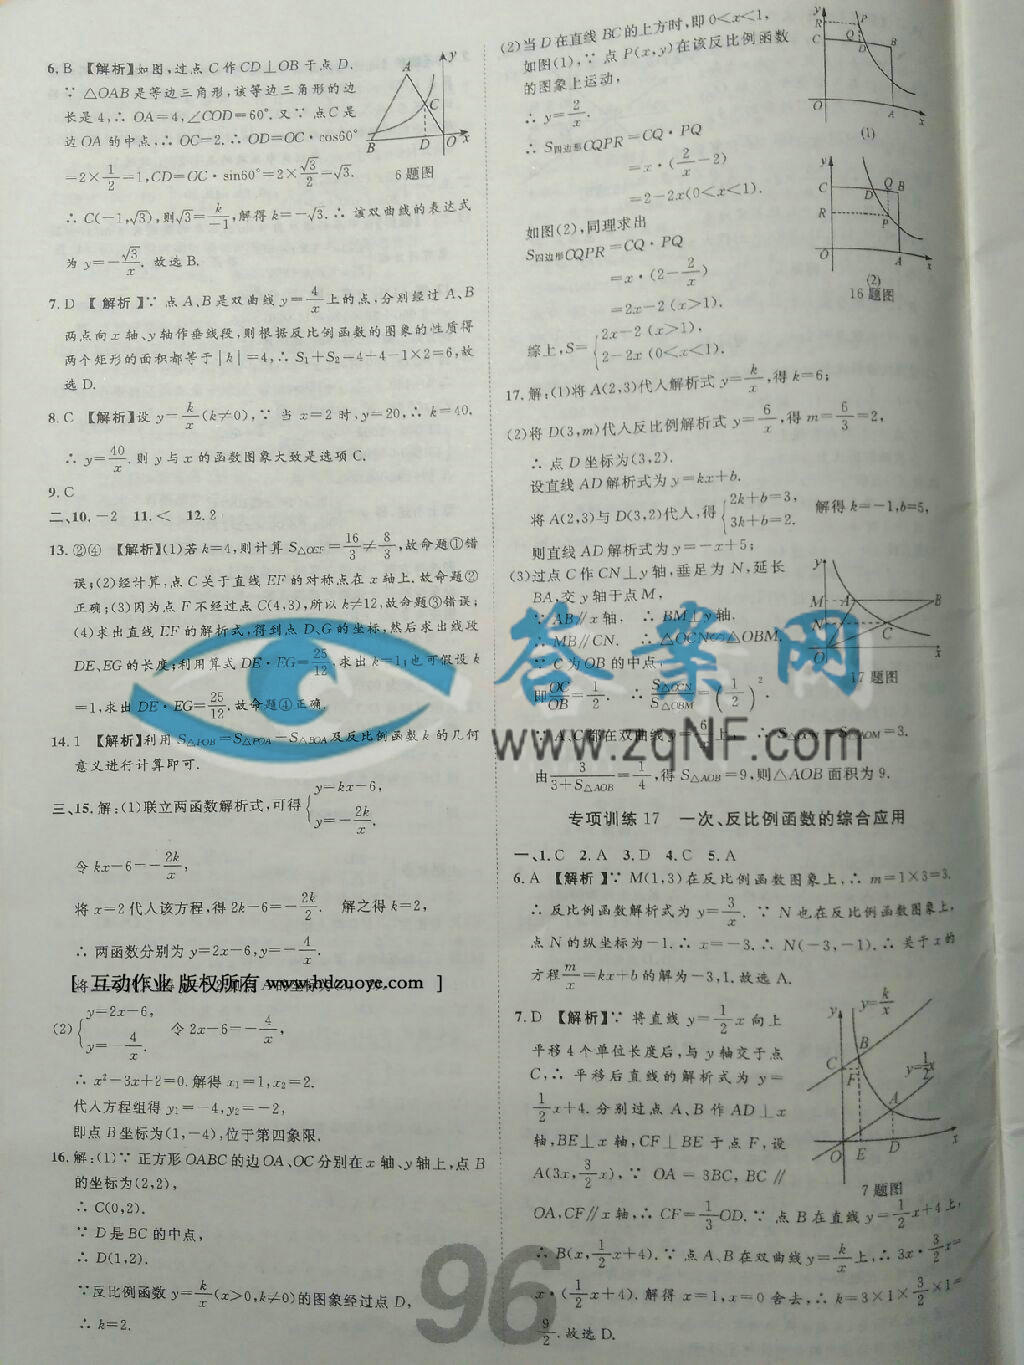 6. B 【解析】如图,过点 C 作 CD⊥OB 于点 D.
∵ △OAB 是等边三角形,该等边三角形的边
长是 4,∴ OA=4,∠COD=60°. 又∵ 点 C 是
边 OA 的中点,∴ OC=2,∴ OD=OC·cos60°
=2×1/2=1,CD=OC·sin60°=2×√3/2=√3.
6题图
∴ C(-1,√3),则√3=k/-1,解得 k=-√3. ∴ 该双曲线的表达式
为 y=-√3/x. 故选 B.
7. D 【解析】∵ 点 A、B 是双曲线 y=4/x 上的点,分别经过 A、B
两点向 x 轴、y 轴作垂线段,则根据反比例函数的图象的性质得
两个矩形的面积都等于|k|=4,∴ S1+S2=4+4-1×2=6,故
选 D.
8. C 【解析】设 y=k/x(k≠0),∵ 当 x=2 时,y=20,∴ k=40,
∴ y=40/x. 则 y 与 x 的函数图象大致是选项 C.
9. C
二、10. -2 11. < 12. 2
13. ②④ 【解析】(1)若 k=4,则计算 S△OEF=16/3≠8/3,故命题①错
误;(2)经计算,点 C 关于直线 EF 的对称点在 x 轴上,故命题②
正确;(3)因为点 F 不经过点 C(4,3),所以 k≠12,故命题③错误;
(4)求出直线 EF 的解析式,得到点 D、G 的坐标,然后求出线段
DE、EG 的长度;利用算式 DE·EG=25/12,求出 k=1;也可假设 k
=1,求出 DE·EG=25/12,故命题④正确.
14. 1 【解析】利用 S△POB=S△POA-S△BOA 及反比例函数 k 的几何
意义进行计算即可.
三、15. 解:(1)联立两函数解析式,可得{y=kx-6, y=-2k/x.
令 kx-6=-2k/x,
将 x=2 代入该方程,得 2k-6=-2k/2. 解之得 k=2,
∴ 两函数分别为 y=2x-6,y=-4/x.
[ 互动作业 版权所有 www.hdzuoye.com ]
(2){y=2x-6, y=-4/x. 令 2x-6=-4/x,
∴ x²-3x+2=0. 解得 x1=1,x2=2.
代入方程组得 y1=-4,y2=-2,
即点 B 坐标为(1,-4),位于第四象限.
16. 解:(1)∵ 正方形 OABC 的边 OA、OC 分别在 x 轴、y 轴上,点 B
的坐标为(2,2),
∴ C(0,2).
∵ D 是 BC 的中点,
∴ D(1,2).
∵反比例函数 y=k/x(x>0,k≠0)的图象经过点 D,
∴ k=2.
(2)当 D 在直线 BC 的上方时,即 0<x<1,
如图(1),∵ 点 P(x,y)在该反比例函数
的图象上运动,
∴ y=2/x.
∴ S四边形CQPR=CQ·PQ
=x·(2/x-2)
=2-2x(0<x<1).
(1)
如图(2),同理求出
S四边形CQPR=CQ·PQ
=x·(2-2/x)
=2x-2(x>1).
(2)
16题图
综上,S={2x-2(x>1), 2-2x(0<x<1).
17. 解:(1)将 A(2,3)代入解析式 y=k/x,得 k=6;
(2)将 D(3,m)代入反比例解析式 y=6/x,得 m=6/3=2,
∴ 点 D 坐标为(3,2).
设直线 AD 解析式为 y=kx+b.
将 A(2,3)与 D(3,2)代入,得{2k+b=3, 3k+b=2. 解得 k=-1,b=5,
则直线 AD 解析式为 y=-x+5;
(3)过点 C 作 CN⊥y 轴,垂足为 N,延长
BA,交 y 轴于点 M,
∵ AB∥x 轴, ∴ BM⊥y 轴.
∴ MB∥CN. ∴ △OCN∽△OBM.
∵ C 为 OB 的中点,
即 OC/OB=1/2. ∴ S△OCN/S△OBM=(1/2)².
17题图
∵ A、C 都在双曲线 y=6/x 上,∴ S△OCN=S△AOM=3.
由 3/(3+S△AOB)=1/4,得 S△AOB=9,则△AOB 面积为 9.
专项训练 17 一次、反比例函数的综合应用
一、1. C 2. A 3. D 4. C 5. A
6. A 【解析】∵ M(1,3)在反比例函数图象上,∴ m=1×3=3,
∴ 反比例函数解析式为 y=3/x. ∵ N 也在反比例函数图象上,
点 N 的纵坐标为-1. ∴ x=-3. ∴ N(-3,-1). ∴ 关于 x 的
方程 m/x=kx+b 的解为-3,1. 故选 A.
7. D 【解析】∵ 将直线 y=1/2x 向上
平移 4 个单位长度后,与 y 轴交于点
C,∴ 平移后直线的解析式为 y=
1/2x+4. 分别过点 A、B 作 AD⊥x
轴,BE⊥x 轴,CF⊥BE 于点 F,设
A(3x,3/2x),∵ OA=3BC,BC∥
7题图
OA,CF∥x 轴,∴ CF=1/3OD. ∵ 点 B 在直线 y=1/2x+4 上,
∴ B(x,1/2x+4). ∵ 点 A、B 在双曲线 y=k/x 上,∴ 3x·3/2x=
x·(1/2x+4). 解得 x=1,x=0 舍去,∴ k=3×1×3/2×1=
9/2. 故选 D.
答案网
www.zqNF.com
96